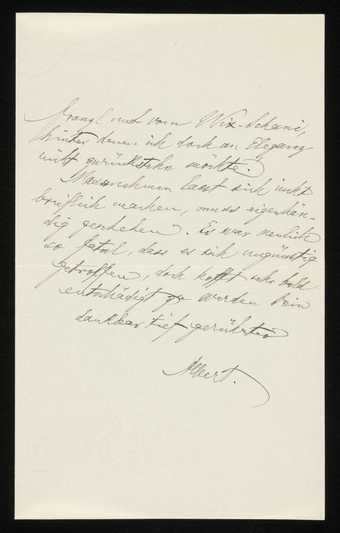 und vom Wix-Schani,
hinter denen ich doch an Eleganz
nicht zurückstehn möchte.
lässt sich nicht
brieflich machen, muss eigenhän-
dig geschehen. Es war neulich
so fatal, dass es sich ungünstig
getroffen, doch hofft sehr bald
entschädigt zu werden Dein
dankbar tief gerührter
Albert.